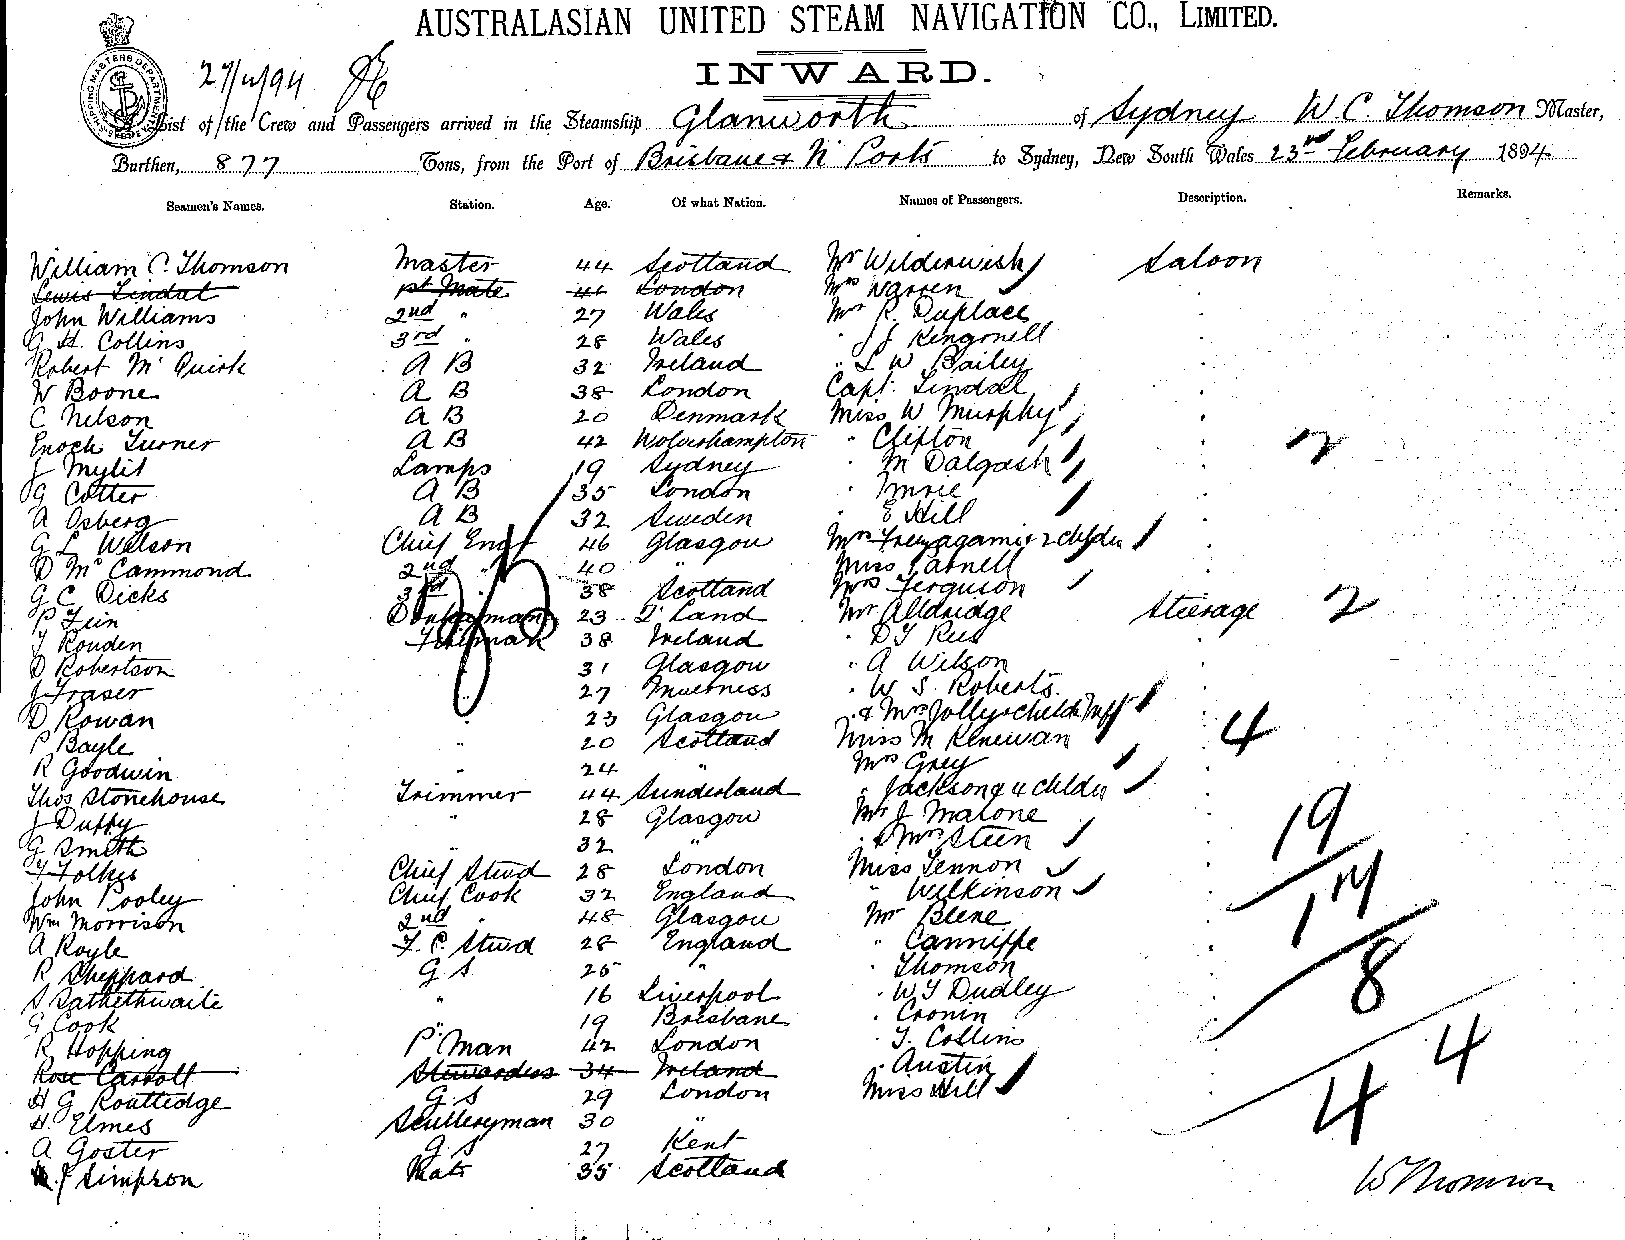 AUSTRALASIAN UNITED STEAM NAVIGATION CO., LIMITED.
INWARD.
SHIPPING MASTERS DEPARTMENT
List of the Crew and Passengers arrived in the Steamship Glanworth of Sydney W C Thomson Master,
Burthen, 877 Tons, from the Port of Brisbane & N Ports to Sydney, New South Wales 23rd February 1894
Seamen's Names. Station. Age. Of what Nation. Names of Passengers. Description. Remarks.
William C Thomson Master 44 Scotland Mr Wilderwish Saloon
Lewis Lindal 1st Mate London Mrs Warren
John Williams 2nd " 27 Wales Mr R. Duplace
G H Collins 3rd " 28 Wales " J J
Robert Mc Quirk A B 32 Ireland " L W Bailey
W Boone A B 38 London Capt. Lindal
C Nelson A B 20 Denmark Miss W Murphy
Enoch Turner A B 42 Wolverhampton " Clifton 2
J Mylit Lamps 19 Sydney " M Dalgash
G Cotter A B 35 London " Imrie
A Osberg A B 32 Sweden " E Hill
G L Watson Chief Engr 46 Glasgow Mrs 2 childn
D Mc Cammond 2nd " 40 " Miss Parnell
G C Dicks 3rd " 38 Scotland Mrs Ferguson
P Fein 23 Land Mr Alldridge Steerage 2
T Rouden Fireman 38 Ireland " D T Rees
D Robertson 31 Glasgow " A Wilson
J Fraser 27 Inverness " W S Roberts
D Rowan 23 Glasgow " & Mrs Jolly & child
P Bayle " 20 Scotland Miss M Renewan 4
R Goodwin " 24 " Mrs Grey
Thos Stonehouse Trimmer 44 Sunderland " Jackson & 4 childn
J Duffy " 28 Glasgow Mr J Malone 19
G Smith " 32 " " & Mrs Steen
F Folkes Chief Stwd 28 London Miss Lennon
John Pooley Chief Cook 32 England " Wilkinson 17
Wm Morrison 2nd " 48 Glasgow Mr Blene
A Royle F. C. Stwd 28 England " Canniffe
R Sheppard G S 25 " " Thomson 8
S Sathethwaite " 16 Liverpool " W T Dudley
G Cook " 19 Brisbane " Cronin
R Hopping P. Man 42 London " T. Collins 4
Rose Carroll Stewardess 34 Ireland " Austin
H G Routledge G. S 29 London Miss Hill 4
H. Elmes Sculleryman 30 "
A Goster G. S 27 Kent
J Simpson Mate 35 Scotland
W Thomson